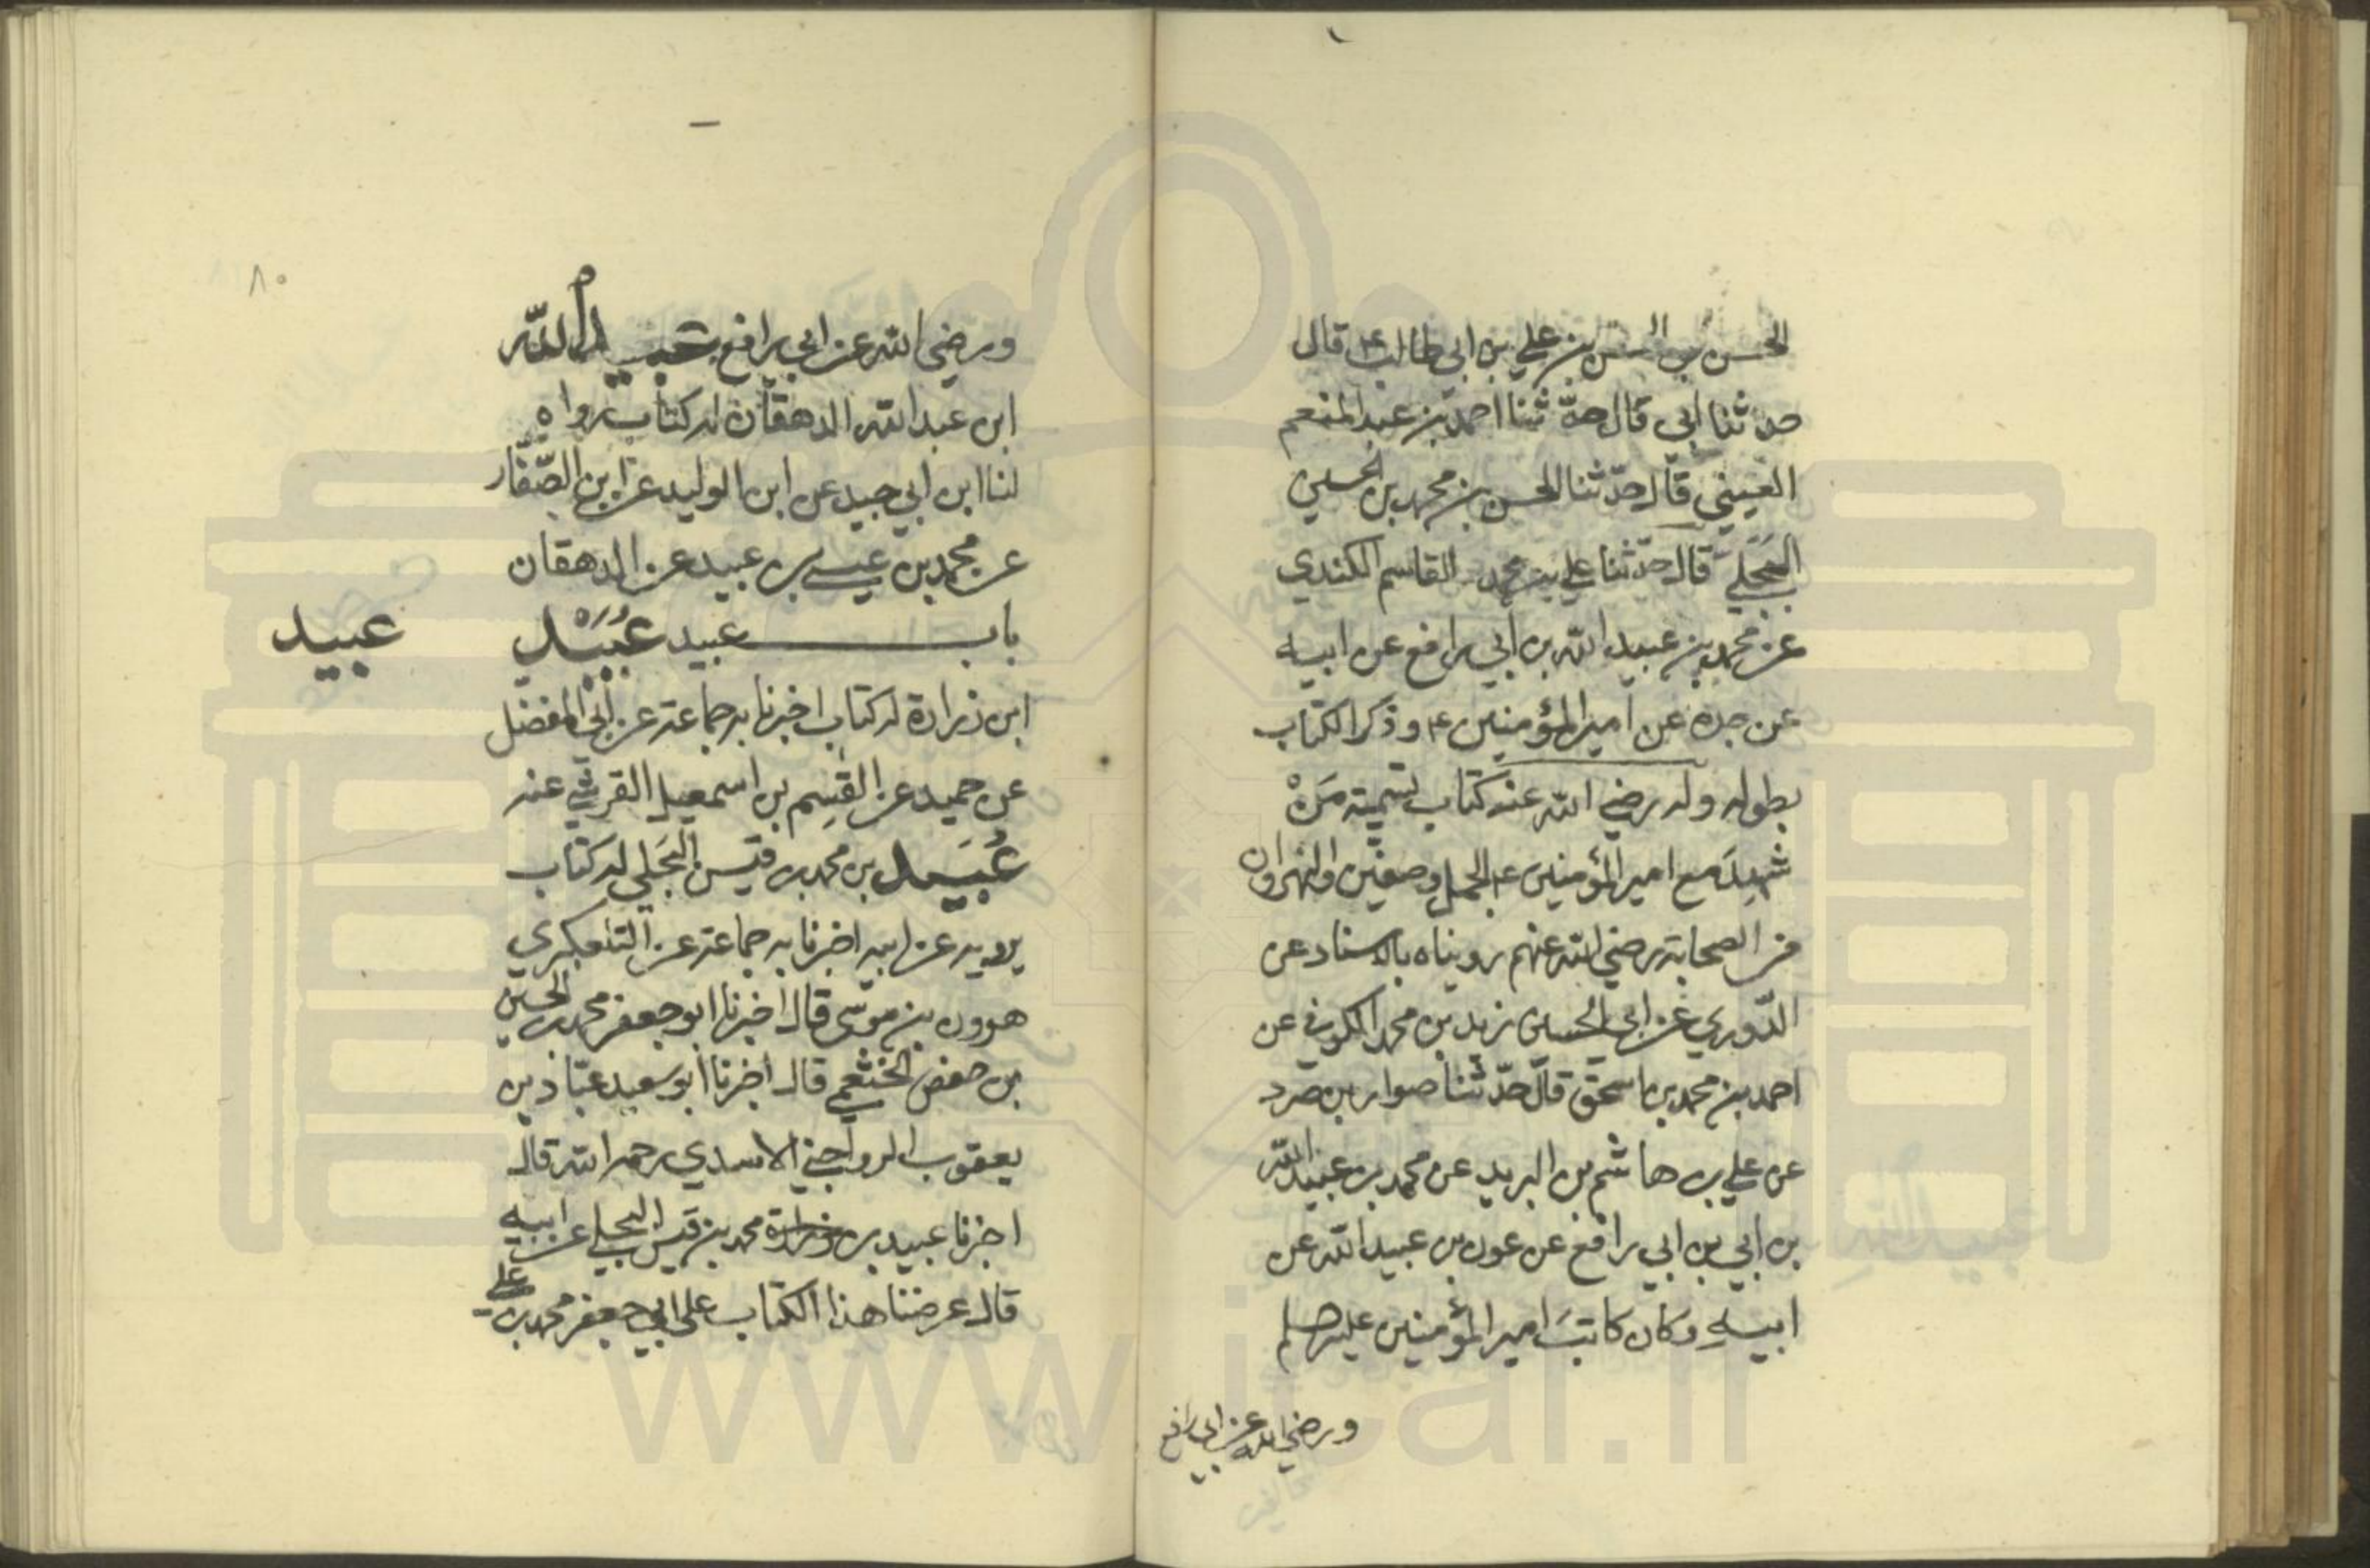 الحسن بن الحسن بن علي بن ابي طالب ع قال
حدثنا ابي قال حدّثنا احمد بن عبد المنعم
العيني قال حدّثنا الحسن بن محمد بن الحسين
البجلي قال حدّثنا علي بن محمد القاسم الكندي
عن محمد بن عبيد الله بن ابي رافع عن ابيه
عن جده عن امير المؤمنين ع و ذكر الكتاب
بطوله وله رضي الله عنه كتاب تسمية مَنْ
شهد مع امير المؤمنين ع الجمل و صفين والنهروان
من الصحابة رضي الله عنهم رويناه بالاسناد عن
الدّوري عن ابي الحسين زيد بن محمد الكوفي عن
احمد بن محمد بن اسحق قال حدّثنا صوار بن صرد
عن علي بن هاشم بن البريد عن محمد بن عبيد الله
بن ابي بن ابي رافع عن عون بن عبيد الله عن
ابيه وكان كاتب امير المؤمنين عليه صلم
ورضي الله عن ابي رافع
٨٠
ورضي الله عن ابي رافع عبيد الله
ابن عبد الله الدهقان له كتاب رواه
لنا ابن ابي جيد عن ابن الوليد عن ابن الصّفّار
عن محمد بن عيسى بن عبيد عن الدهقان
باب عبيد عُبَيْد
عبيد
ابن زرارة له كتاب اخبرنا به جماعة عن ابي المفضل
عن حميد عن القسم بن اسمعيل القرشي عنه
عُبَيد بن محمد بن قيس البَجَلي له كتاب
يرويه عن ابيه اخبرنا به جماعة عن التلعكبري
هرون بن موسى قال اخبرنا ابو جعفر محمد بن الحسين
بن حفص الخثعمي قال اخبرنا ابو سعيد عبّاد بن
يعقوب الرواجني الاسدي رحمه الله قال
اخبرنا عبيد بن زرارة محمد بن قيس البجلي عن ابيه
قال عرضنا هذا الكتاب على ابي جعفر محمد بن علي
www.ical.ir